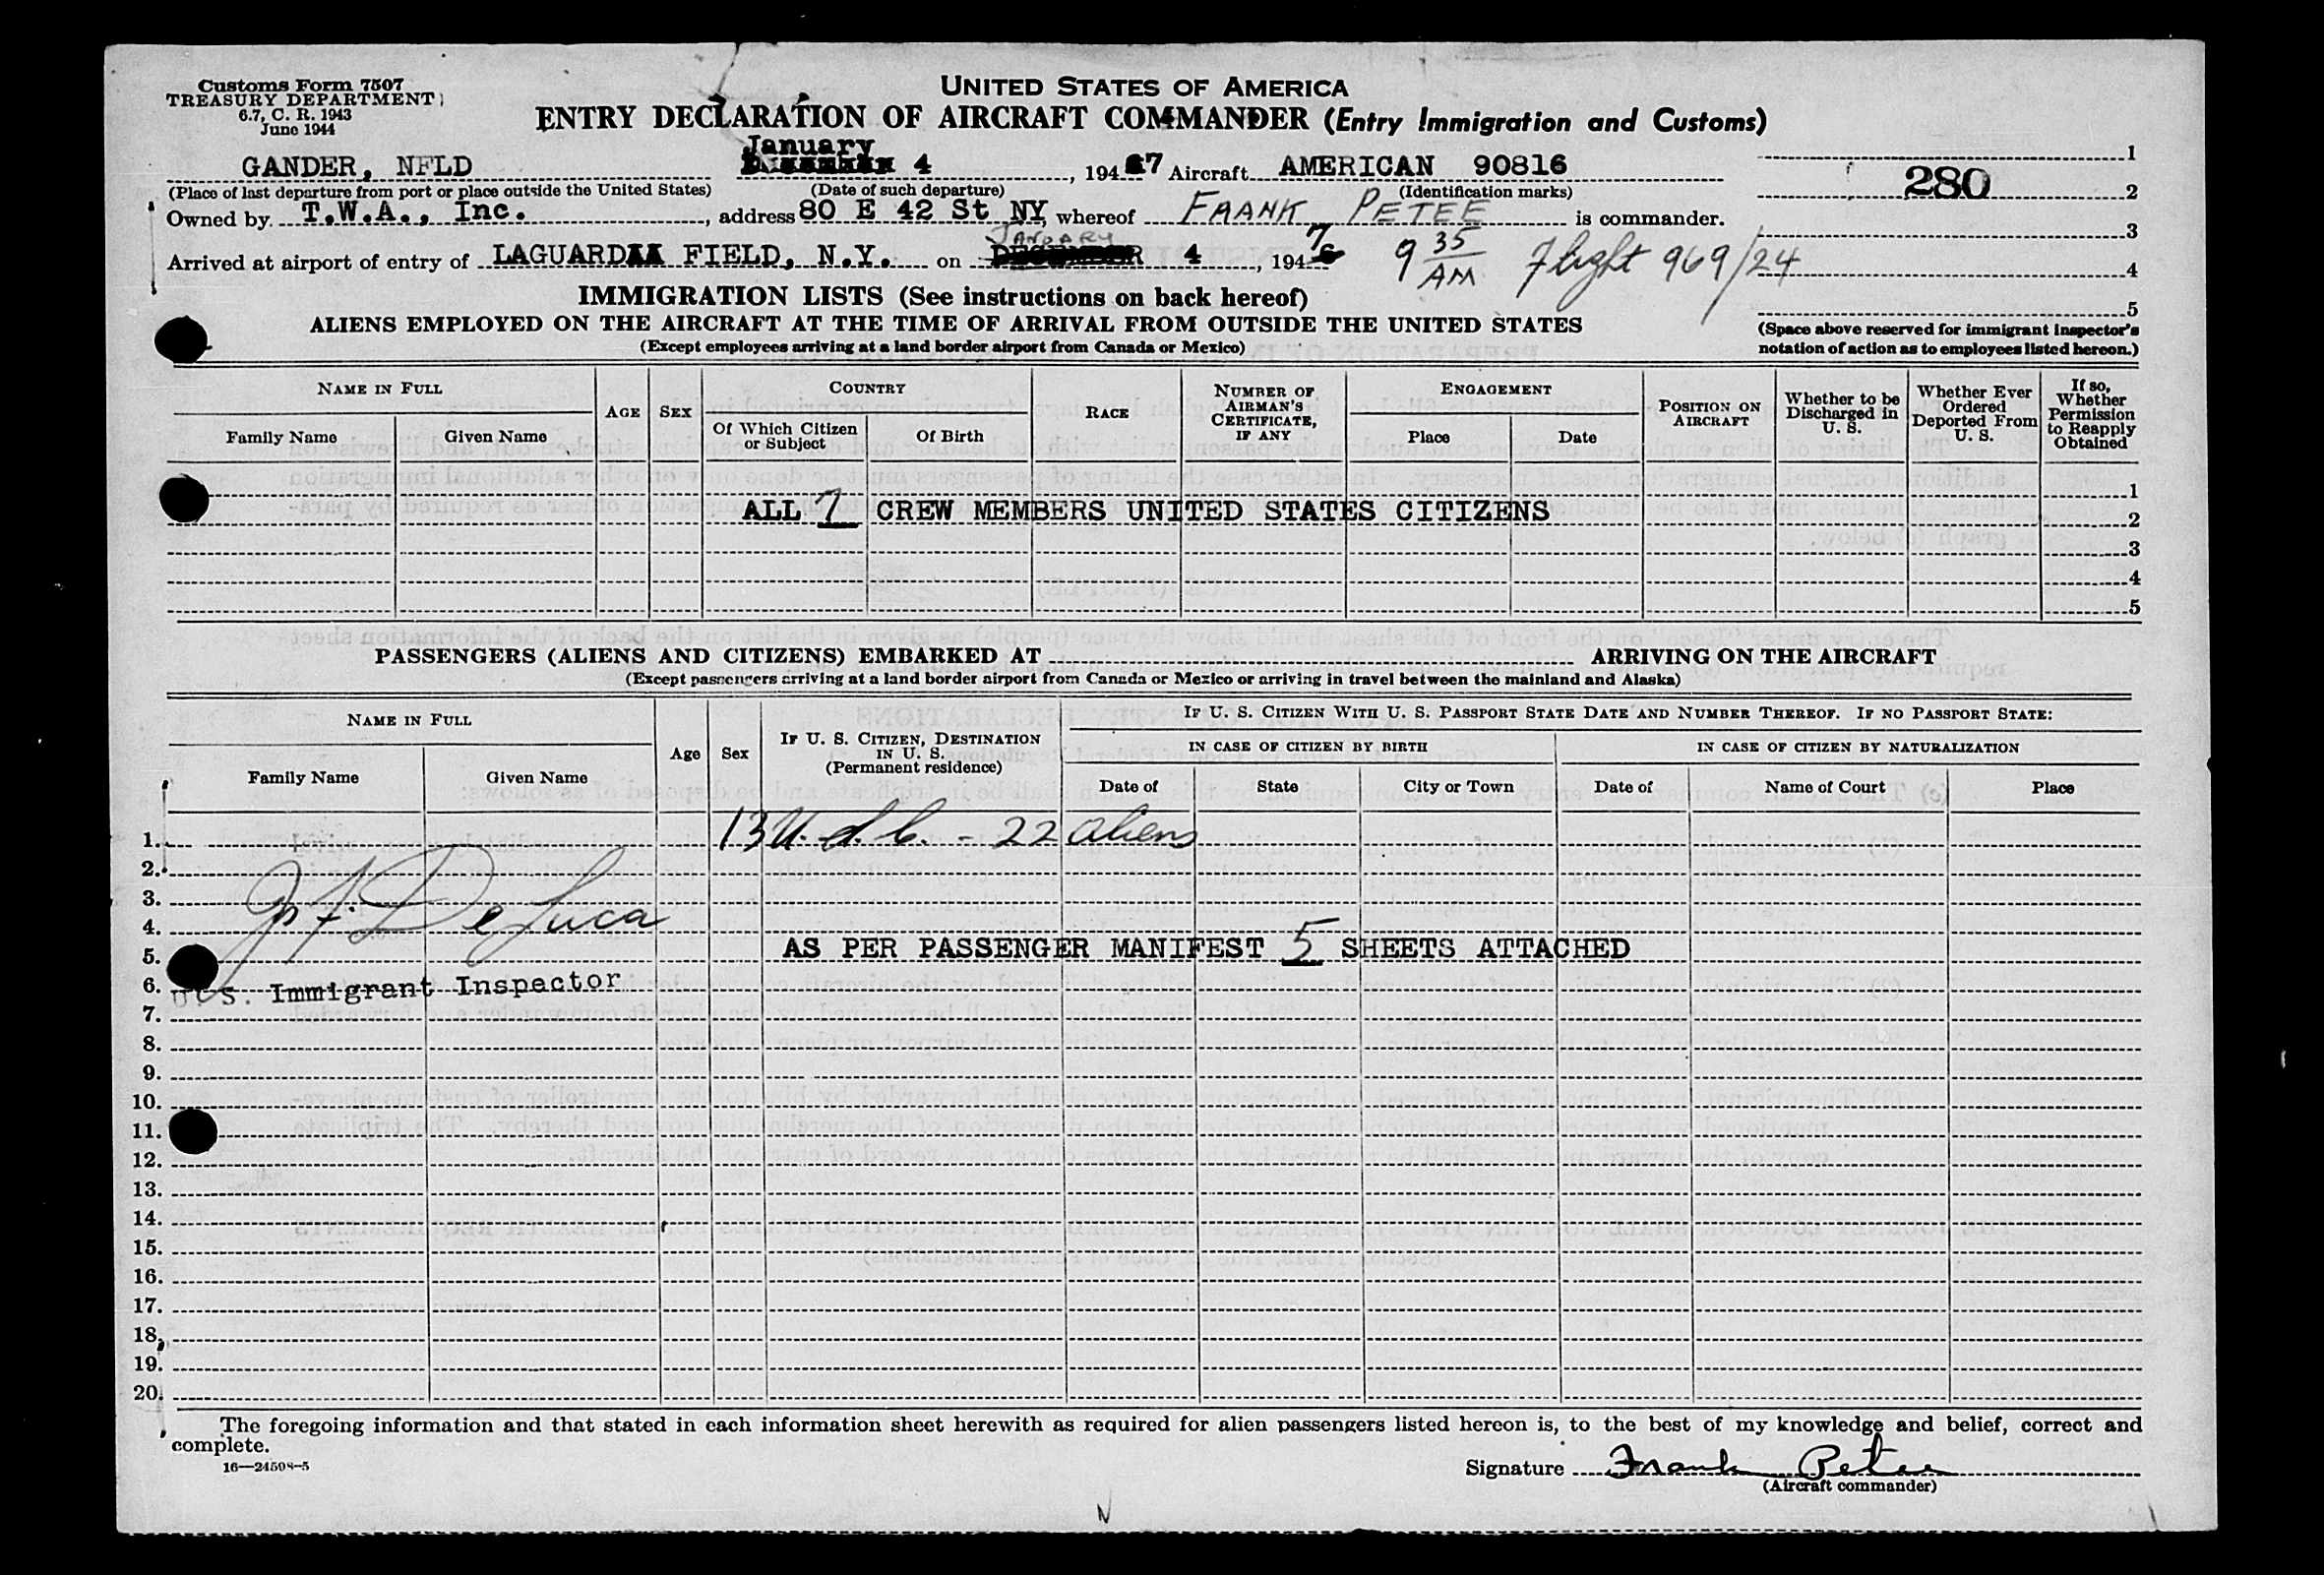 Customs Form 7507
TREASURY DEPARTMENT
6.7, C. R. 1943
June 1944
UNITED STATES OF AMERICA
ENTRY DECLARATION OF AIRCRAFT COMMANDER (Entry Immigration and Customs)
January
GANDER, NFLD 4, 1947 Aircraft AMERICAN 90816
(Place of last departure from port or place outside the United States) (Date of such departure) (Identification marks)
Owned by T.W.A., Inc., address 80 E 42 St NY, whereof FRANK PETEE is commander.
JANUARY
Arrived at airport of entry of LAGUARDIA FIELD, N.Y. on DECEMBER 4, 1947 9 35 AM Flight 969/24
1
280
2
3
4
5
(Space above reserved for immigrant inspector's notation of action as to employees listed hereon.)
IMMIGRATION LISTS (See instructions on back hereof)
ALIENS EMPLOYED ON THE AIRCRAFT AT THE TIME OF ARRIVAL FROM OUTSIDE THE UNITED STATES
(Except employees arriving at a land border airport from Canada or Mexico)
NAME IN FULL
Family Name
Given Name
AGE
SEX
COUNTRY
Of Which Citizen or Subject
Of Birth
RACE
NUMBER OF AIRMAN'S CERTIFICATE, IF ANY
ENGAGEMENT
Place
Date
POSITION ON AIRCRAFT
Whether to be Discharged in U. S.
Whether Ever Ordered Deported From U. S.
If so, Whether Permission to Reapply Obtained
1
ALL 7 CREW MEMBERS UNITED STATES CITIZENS
2
3
4
5
PASSENGERS (ALIENS AND CITIZENS) EMBARKED AT ARRIVING ON THE AIRCRAFT
(Except passengers arriving at a land border airport from Canada or Mexico or arriving in travel between the mainland and Alaska)
NAME IN FULL
Family Name
Given Name
Age
Sex
IF U. S. CITIZEN, DESTINATION IN U. S.
(Permanent residence)
IF U. S. CITIZEN WITH U. S. PASSPORT STATE DATE AND NUMBER THEREOF. IF NO PASSPORT STATE:
IN CASE OF CITIZEN BY BIRTH
Date of
State
City or Town
IN CASE OF CITIZEN BY NATURALIZATION
Date of
Name of Court
Place
1. 13 U.S.C. - 22 aliens
2.
3.
4. De Luca
5. AS PER PASSENGER MANIFEST 5 SHEETS ATTACHED
6. U.S. Immigrant Inspector
7.
8.
9.
10.
11.
12.
13.
14.
15.
16.
17.
18.
19.
20.
The foregoing information and that stated in each information sheet herewith as required for alien passengers listed hereon is, to the best of my knowledge and belief, correct and
complete.
16—24598-5
Signature Frank Petee
(Aircraft commander)
N